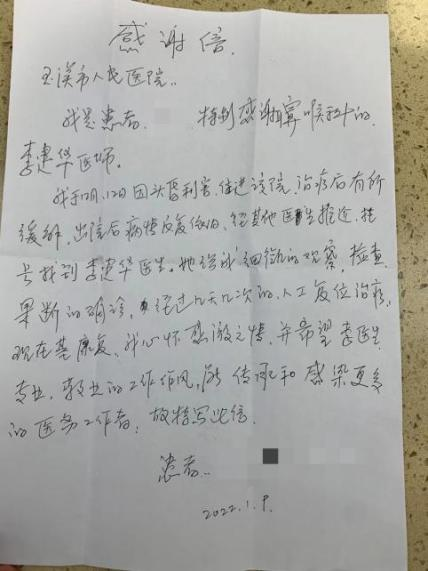 感谢信.
玉溪市人民医院..
我是患者. 特别感谢耳鼻喉科的
李建华医师.
我于1月12日因头晕利害,住进该院,治疗后有所
缓解,出院后病情反复依旧,经其他医生推送,挂
号找到李建华医生.她 细微的观察,检查
果断的确诊,经过几天几次的人工复位治疗,
现在基康复.我心怀感激之情,并希望李医生
专业,敬业的工作作风,能传承和感染更多
的医务工作者,故特写此信.
患者..
2022.1.9.